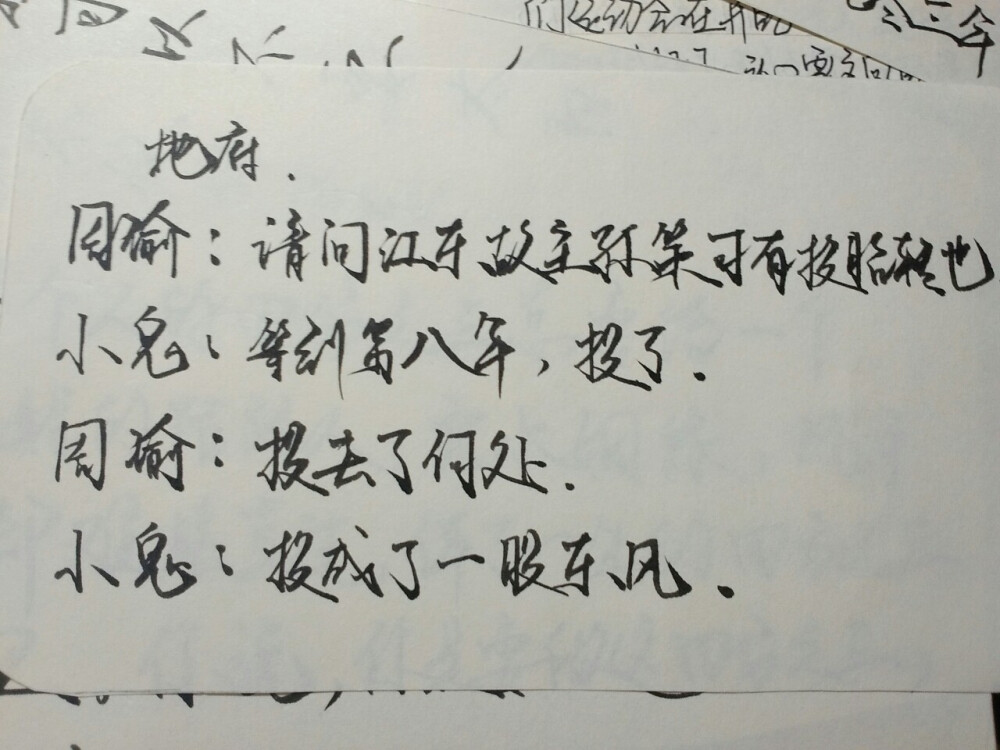 们运动会在开
三年
地府.
周瑜：请问江东故主孙策可有投胎转世
小鬼：等到第八年，投了.
周瑜：投去了何处.
小鬼：投成了一股东风.